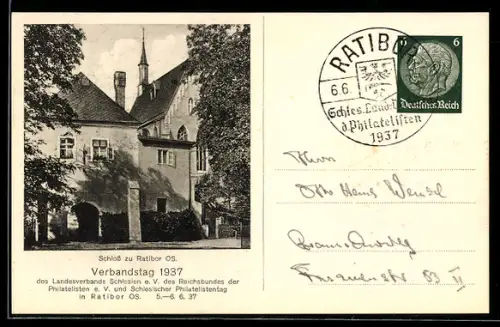 Schloß zu Ratibor OS.
Verbandstag 1937
des Landesverbands Schlesien e. V. des Reichsbundes der
Philatelisten e. V. und Schlesischer Philatelistentag
in Ratibor OS. 5.—6. 6. 37
RATIBOR
6.6.
Schles. Land.
d. Philatelisten
1937
6 6
Deutsches Reich
Herrn
Otto Heinz Wensel